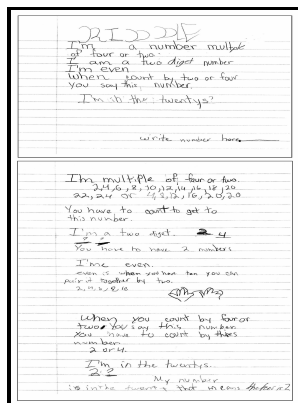 RIDDLE
I'm a number multiple
of four or two.
I am a two diget number
I'm even
when count by two or four
you say this number.
I'm in the twentys?
write number here.
I'm multiple of four or two.
2,4,6,8,10,12,14,16,18,20
22,24 or 4,8,12,16,20,20
You have to count to get to
this number.
I'm a two diget. 2 4
You have to have 2 numbers
I'me even.
even is when you have ten you can
pair it together by two.
2,4,6,8,10
when you count by four or
two. You say this number
You have to count by
number
2 or 4.
I'm in the twentys.
22
My number
is in the twentys that means the four is 2